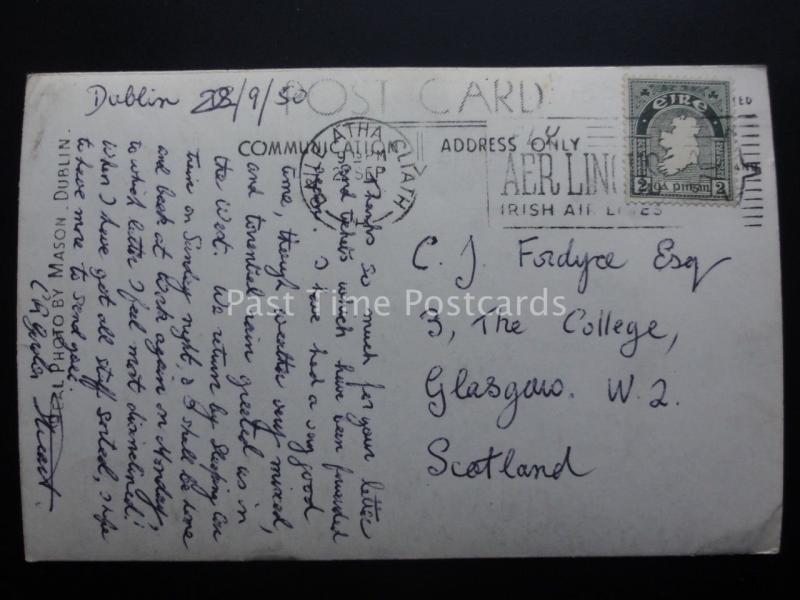 Dublin 28/9/50
POST CARD
COMMUNICATION
ADDRESS ONLY
ATHA CLIATH
FLY
AER LINGUS
IRISH AIR LINES
ÉIRE
2 2
REAL PHOTO BY MASON, DUBLIN.
Thanks so much for your letter
and there's which have been forwarded
here on. I have had a very good
time, though weather very mixed,
and torrential rain greeted us in
the West. We return by Sleeping Car
train on Sunday night, & I shall be home
and back at work again on Monday,
to which latter I feel most disinclined!
When I have got all stuff sorted, I hope
to have more to send you.
Stuart.
C. J. Fordyce Esq
3, The College,
Glasgow. W.2.
Scotland
Past Time Postcards